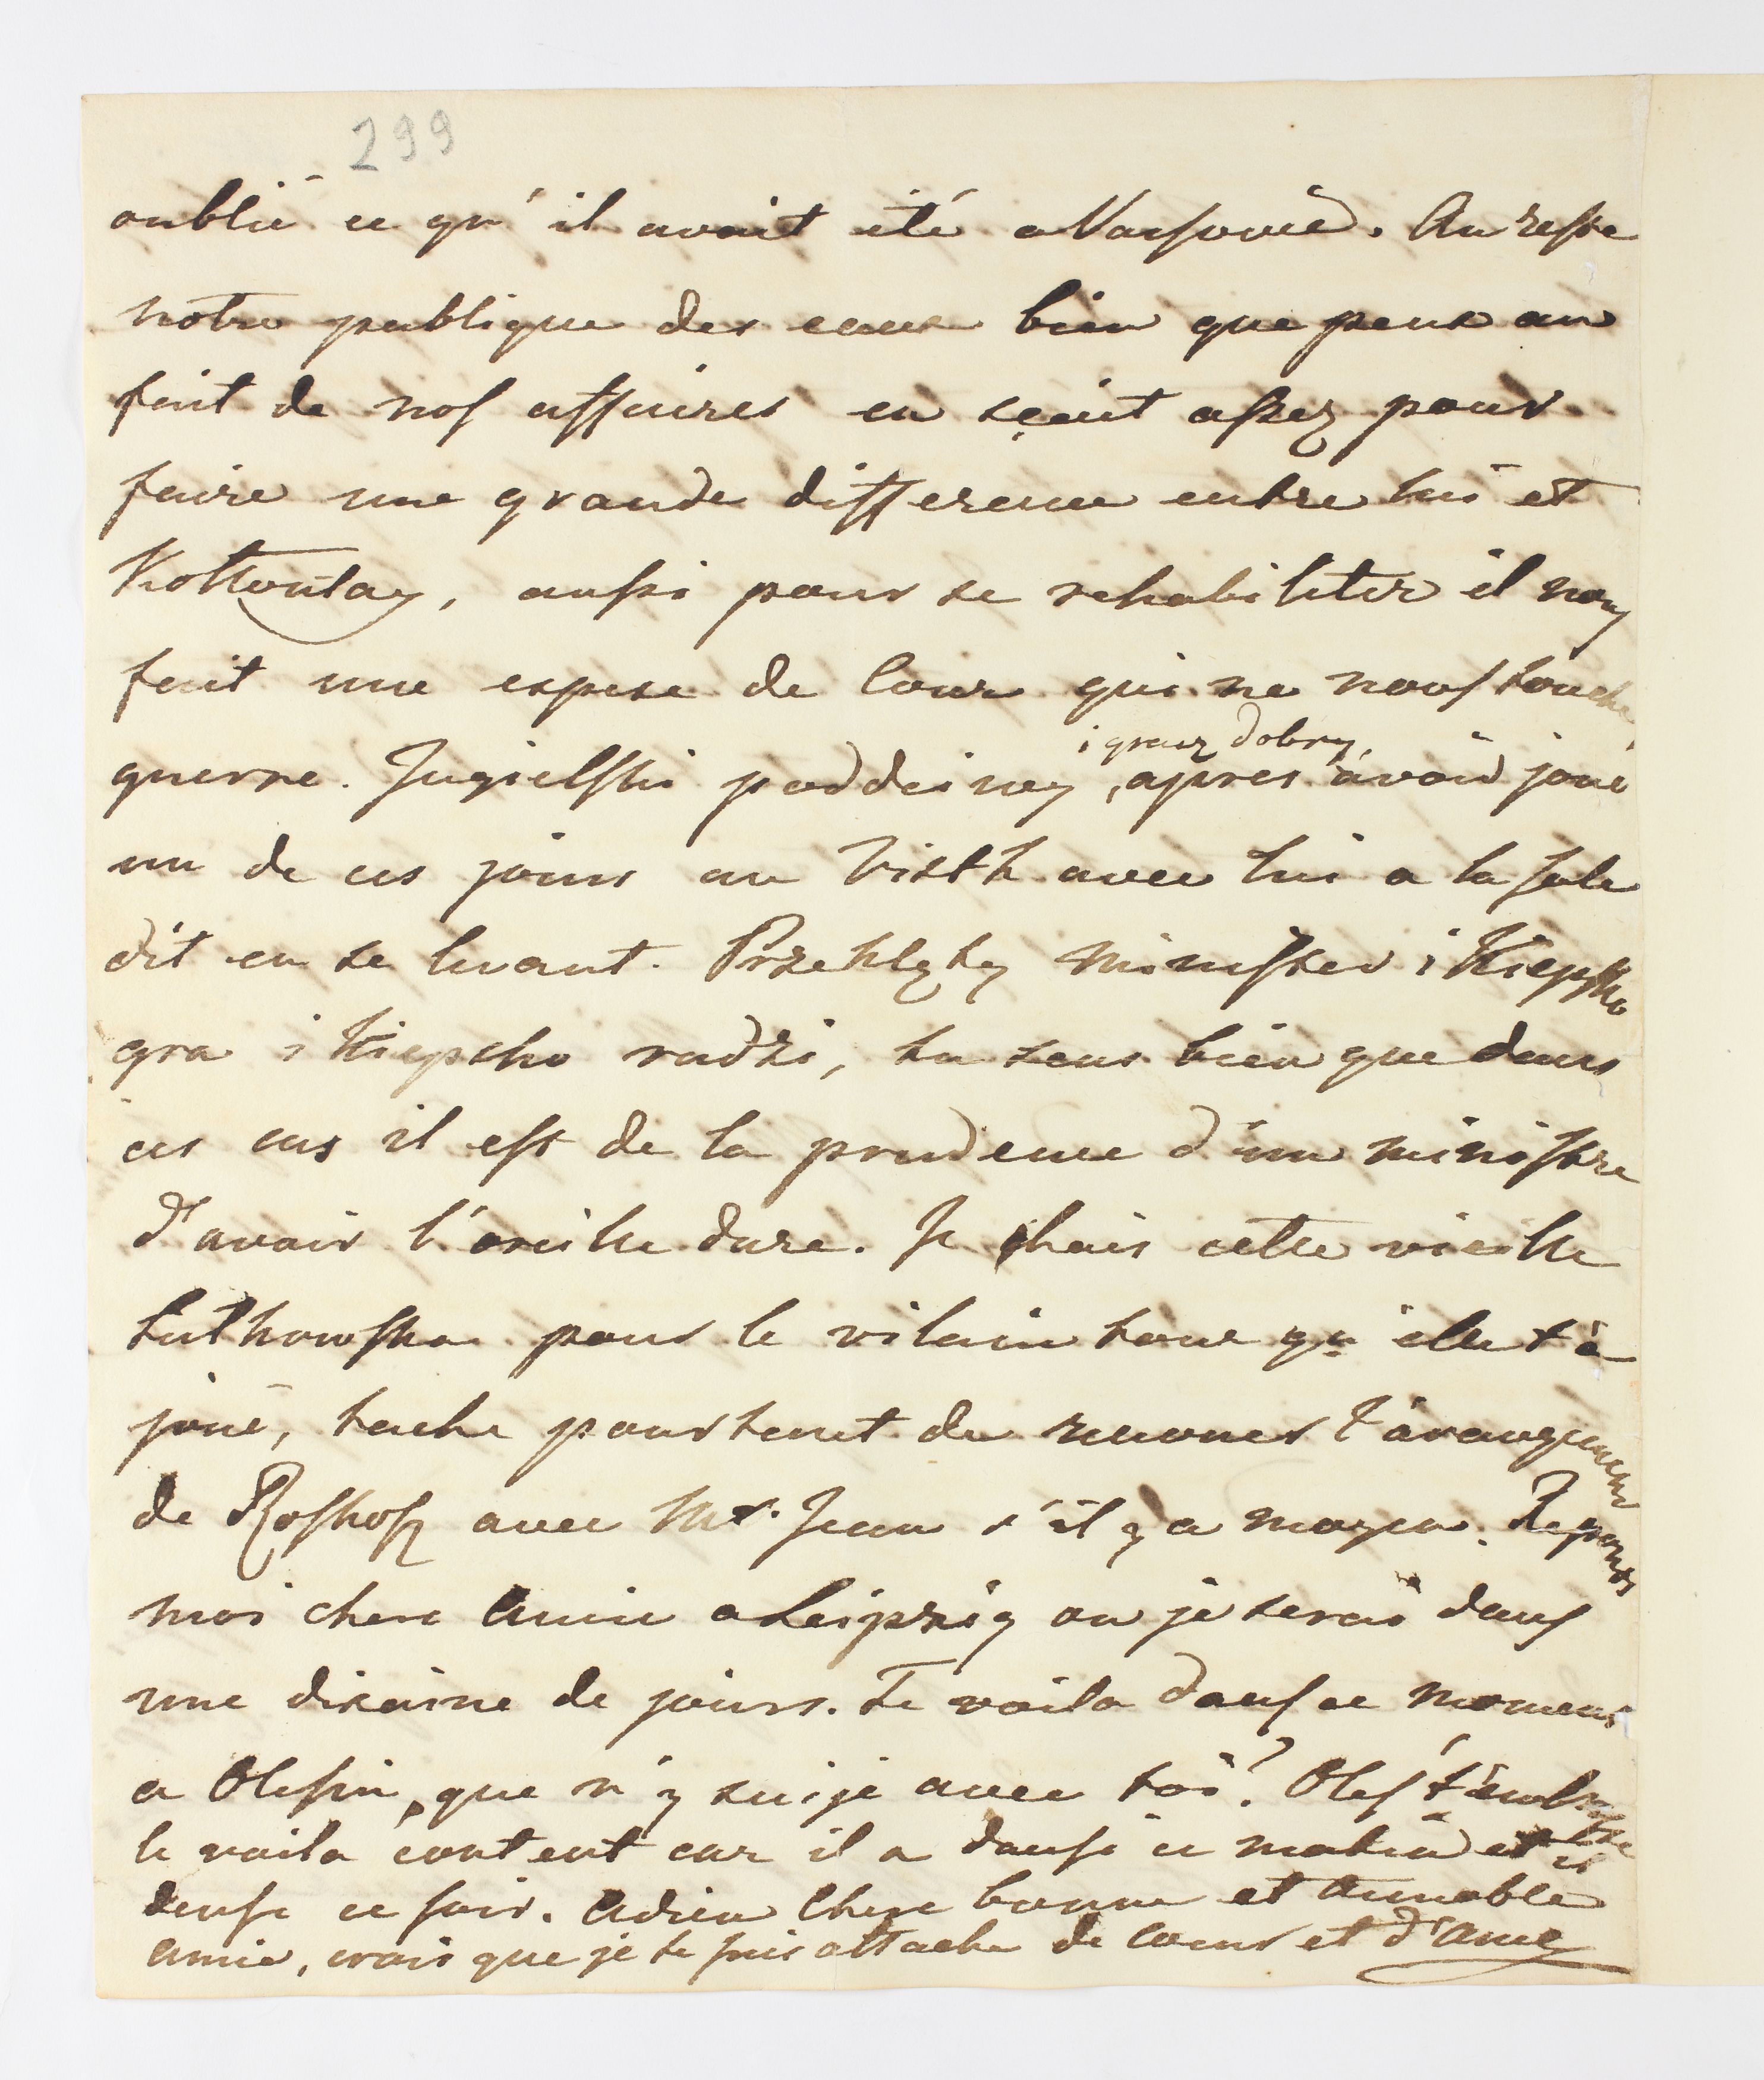 299
oublié ce qu'il avait été a Varsovie. Au reste
notre publique des eaux bien que peux au
fait de nos affaires en sçait assez pour
faire une grande difference entre lui et
Kottontay, aussi pour se rehabiliter il nous
fait une espese de Cour qui ne nous touche
i gracz dobry,
guerre. Jugielski podczirey, apres avoir joué
un de ces jours au Visth avec lui a la sale
dit en se levant. Przeklęty Minister i Kiepsko
gra i Kiepsko radzi, tu sens bien que dans
ces cas il est de la prudence d'un ministre
d'avoir l'oreille dure. Je hais cette vieille
Sutkowska pour le vilain tour qu'elle t'a
joué, tache pourtant de renouer l'arangement
de Roskosz avec Mr. Jean s'il y a moyen. Repons
moi chere Amie a Leipzig ou je serai dans
une dixaine de jours. Te voila dans ce moment
a Olesin, que n'y suije avec toi? Oles t'embrasse
le voila content car il a dansé ce matin et il
danse ce soir. Adieu Chere bonne et Aimable
Amie, crois que je te suis attaché de Coeur et d'Ame